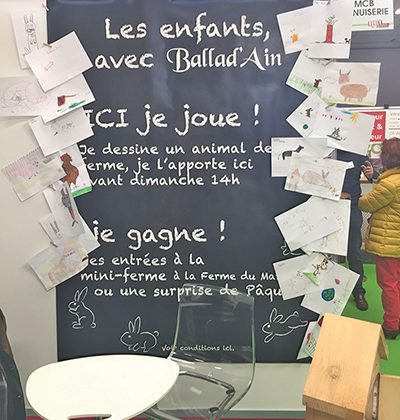 Les enfants,
avec Ballad'Ain
ICI je joue !
Je dessine un animal de
ferme, je l'apporte ici
avant dimanche 14h
je gagne !
des entrées à la
mini-ferme à la Ferme du
ou une surprise de
Voir conditions ici.
MCB
NUISERIE